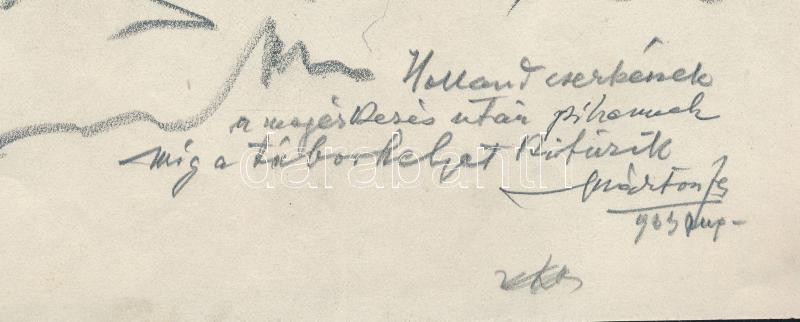 Holland cserkészek
a megérkezés után pihennek
míg a táborhelyet kitűzik
Márton Fs
933 aug-
darabanth